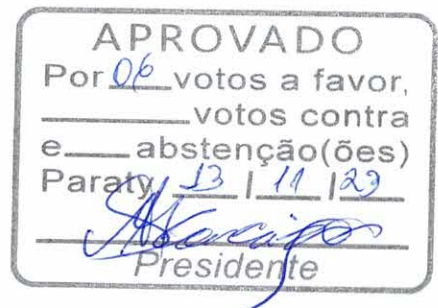 APROVADO
Por 06 votos a favor,
votos contra
e abstenção(ões)
Paraty, 13 / 11 / 23
Presidente